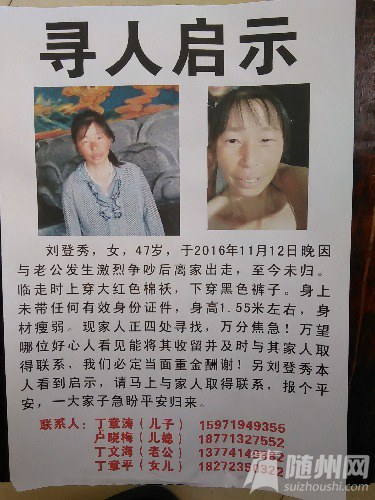 寻人启示
刘登秀，女，47岁，于2016年11月12日晚因
与老公发生激烈争吵后离家出走，至今未归。
临走时上穿大红色棉袄，下穿黑色裤子。身上
未带任何有效身份证件，身高1.55米左右，身
材瘦弱。现家人正四处寻找，万分焦急！万望
哪位好心人看见能将其收留并及时与其家人取
得联系，我们必定当面重金酬谢！另刘登秀本
人看到启示，请马上与家人取得联系，报个平
安，一大家子急盼平安归来。
联系人：丁章涛（儿子） 15971949355
卢晓梅（儿媳） 18771327552
丁文海（老公）
丁章平（女儿）
随州网
suizhoushi.com